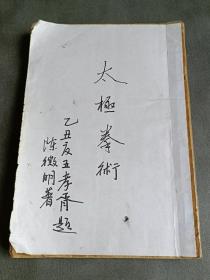 太極拳術
乙丑夏五孝胥題
陳微明著